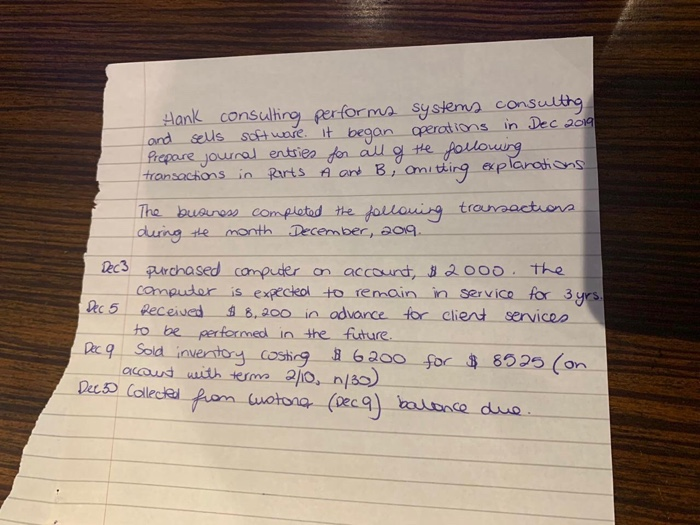 Hank consulting performs systems consulting
and sells software. It began operations in Dec 2019
Prepare journal entries for all of the following
transactions in Parts A and B, omitting explanations
The business completed the following transactions
during the month December, 2019.
Dec 3 purchased computer on account, $2000. The
computer is expected to remain in service for 3 yrs.
Dec 5 Received $8,200 in advance for client services
to be performed in the future.
Dec 9 Sold inventory costing $6200 for $8525 (on
account with terms 2/10, n/30)
Dec 30 Collected from customer (Dec 9) balance due.